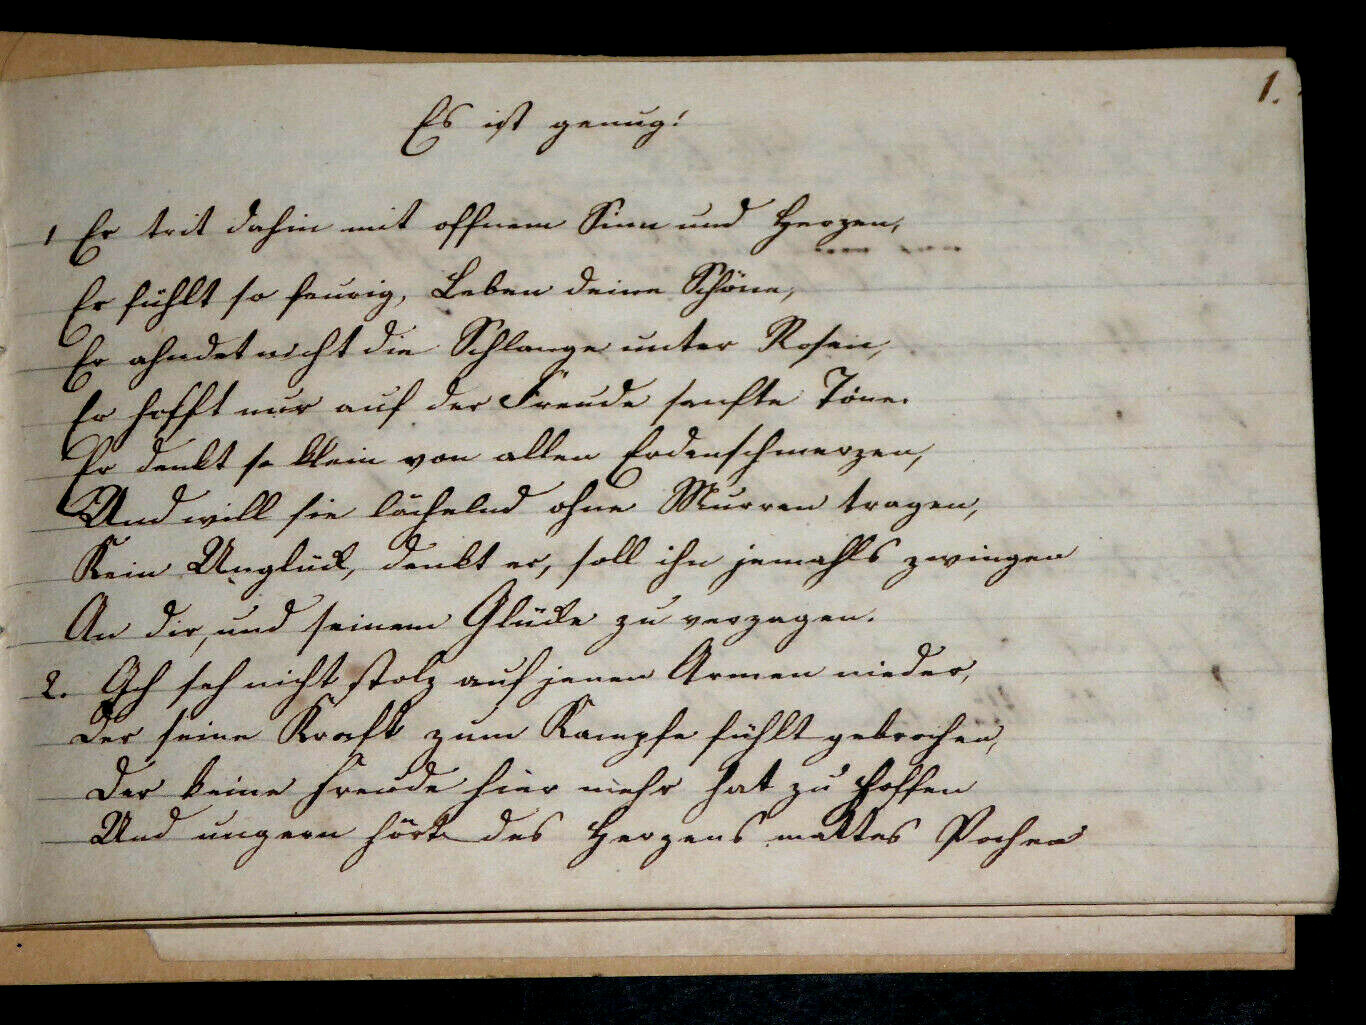 1.
Es ist genug!
1 Er trit dahin mit offnem Sinn und Herzen,
Er fühlt so feurig, Leben deine Schöne,
Er ahndet nicht die Schlange unter Rosen,
Er hofft nur auf der Freude sanfte Töne.
Er denkt so klein von allen Erdenschmerzen,
Und will sie lächelnd ohne Murren tragen,
Kein Unglück, denkt er, soll ihn jemahls zwingen
An dir, und seinem Glücke zu verzagen.
2. Ich seh nicht stolz auf jenen Armen nieder,
Der seine Kraft zum Kampfe fühlt gebrochen,
Der keine Freude hier mehr hat zu hoffen
Und ungern hört des Herzens mattes Pochen